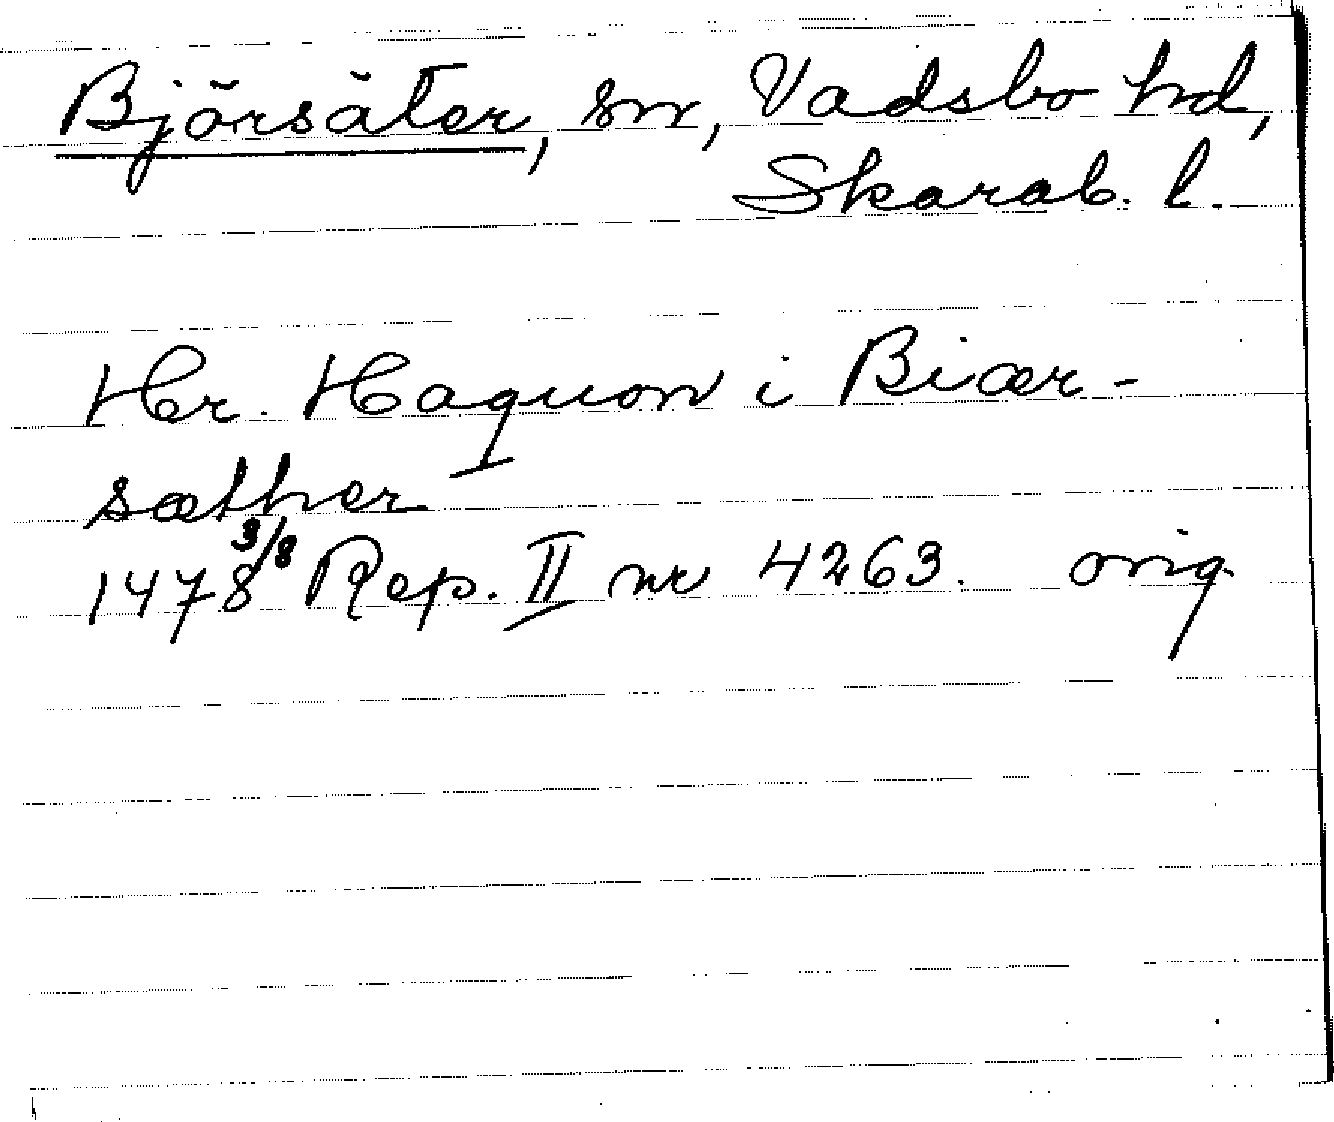 Björsäter, sn, Vadsbo hd,
Skarab. l.
Hr. Haquon i Biær-
sæther
1478 3/8 Rep. II nr 4263. orig